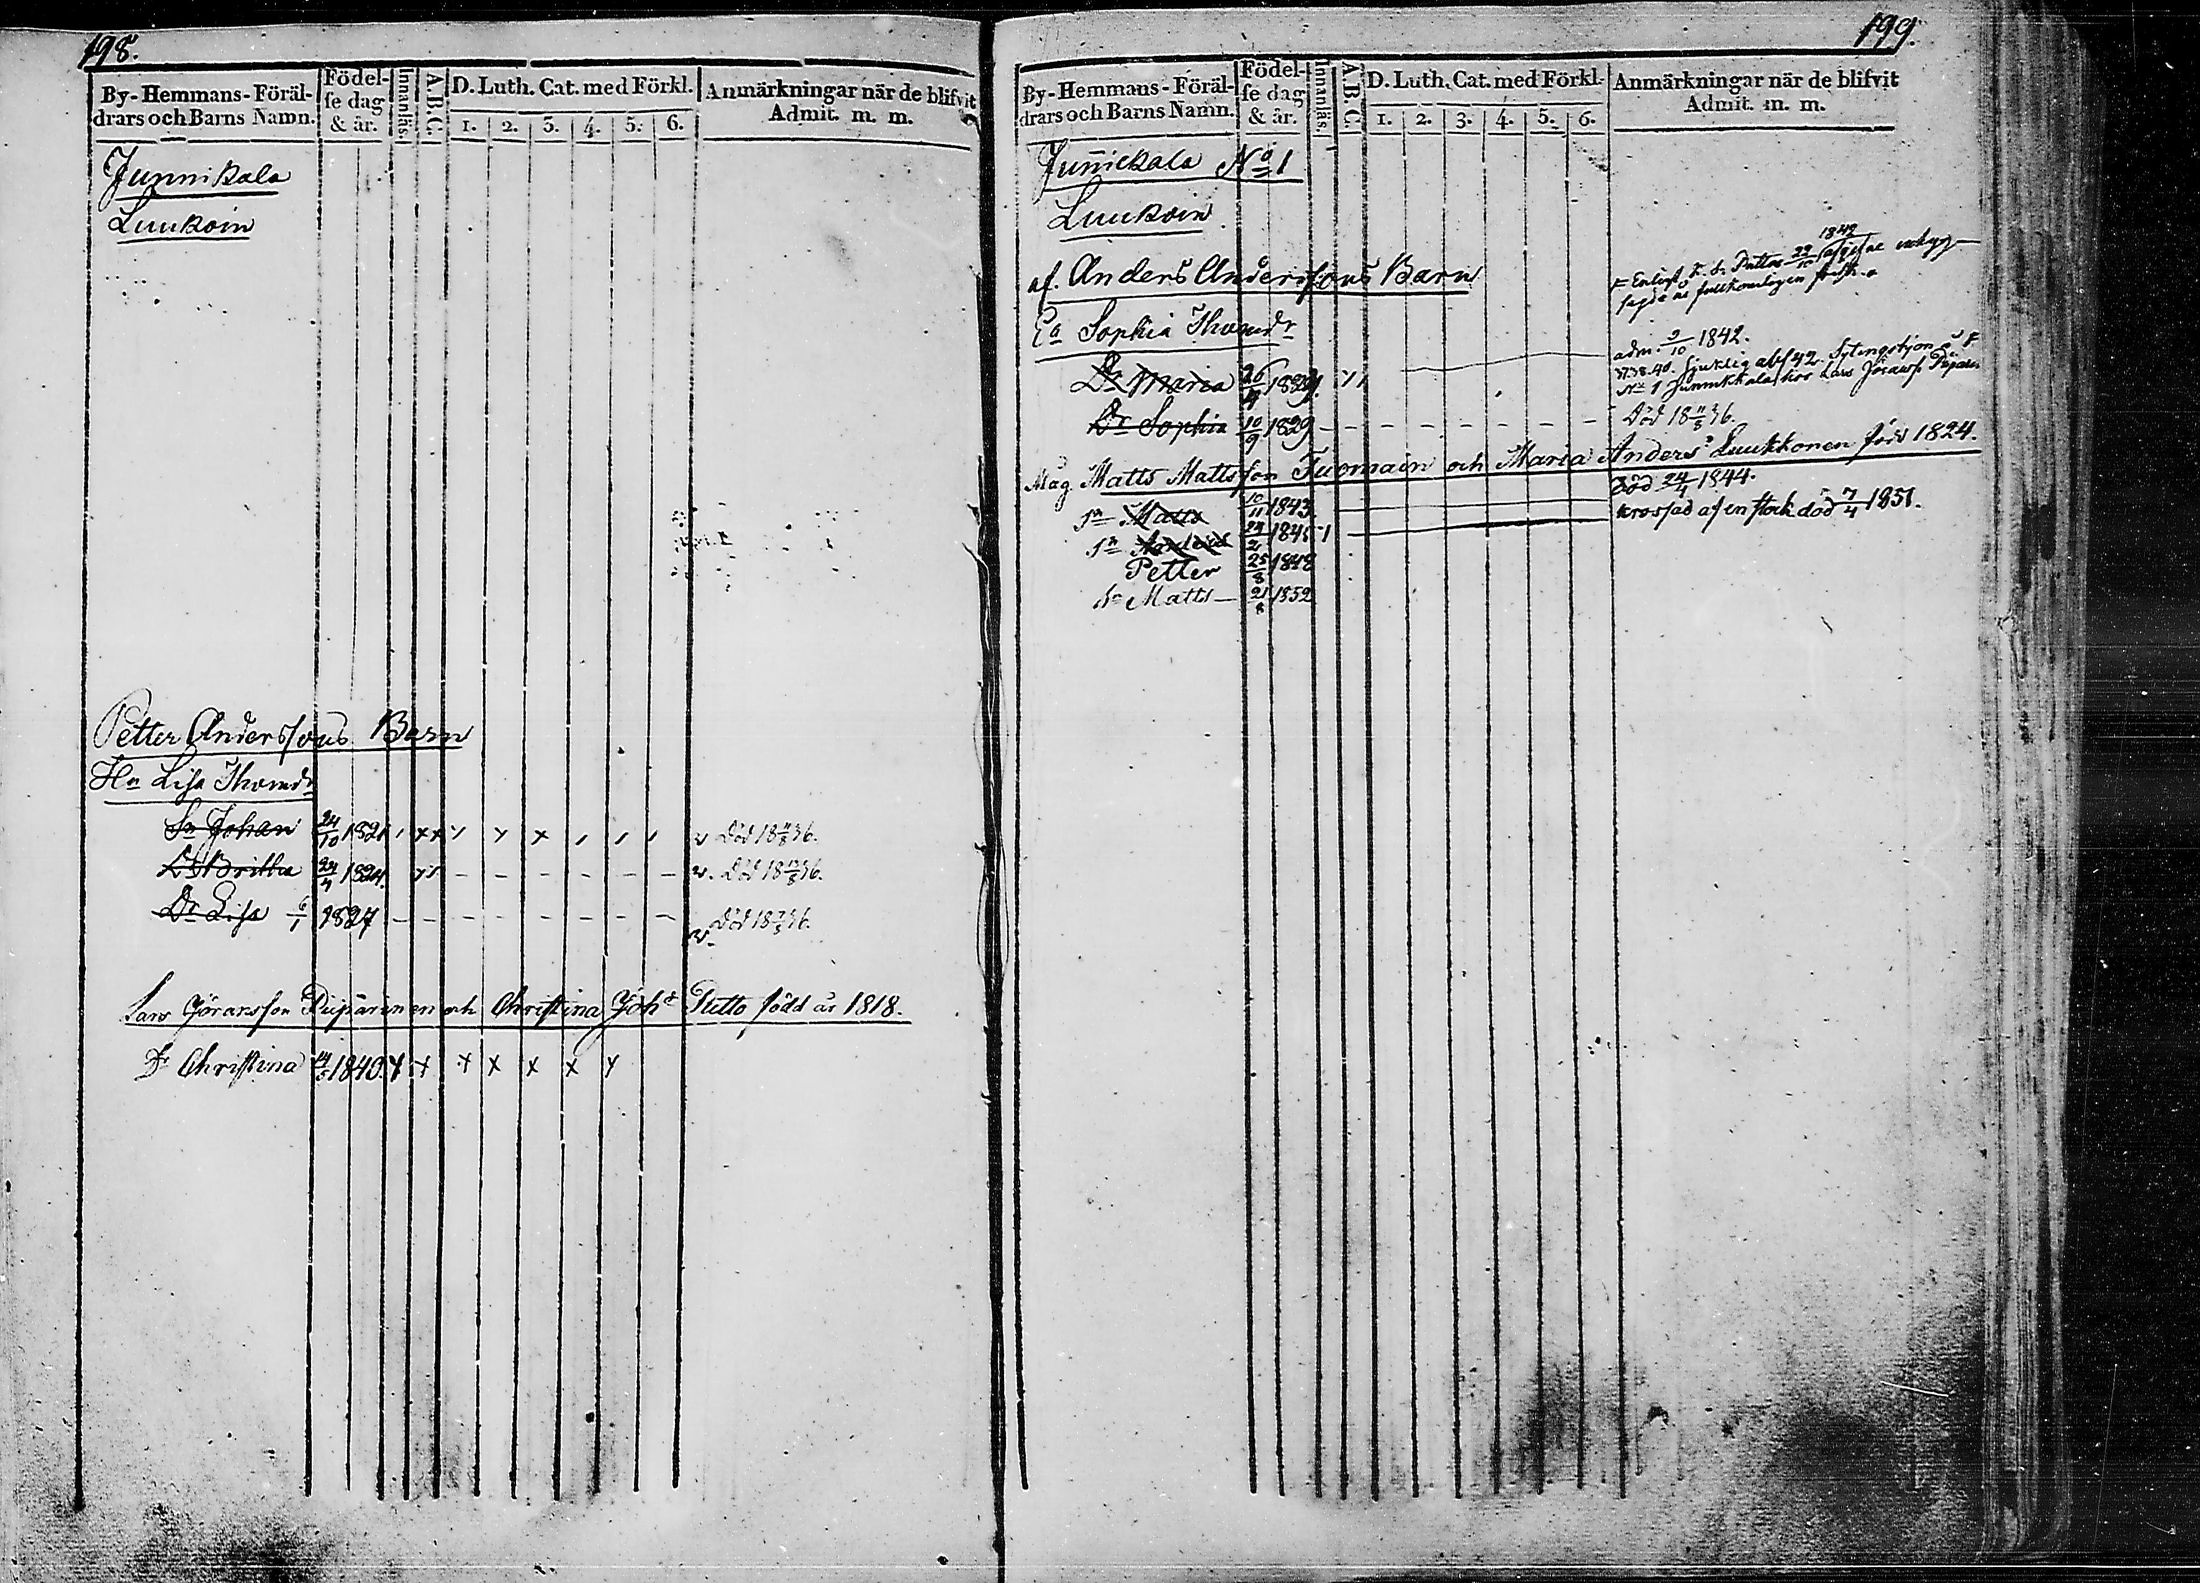 198.
By-Hemmans-Föräl-
drars och Barns Namn.
Födel-
se dag
& år.
Innanläs.
A.B.C.
D. Luth. Cat. med Förkl.
1. 2. 3. 4. 5. 6.
Anmärkningar när de blifvit
Admit. m. m.
Junnikala
Luukoin
Petter Anderssons Barn
Hu Lisa Thomdr
Sn Johan 24/10 1821 Död 18 11/8 36.
Dr Britha 24/4 1824. Död 18 /8 36.
Dr Lisa 6/1 1827 Död 18 36.
Lars Göransson Piipärinen och Christina Johd Putto född år 1818.
Dr Christina 1840. x x x x x x x
199.
By-Hemmans-Föräl-
drars och Barns Namn.
Födel-
se dag
& år.
Innanläs.
A.B.C.
D. Luth. Cat. med Förkl.
1. 2. 3. 4. 5. 6.
Anmärkningar när de blifvit
Admit. m. m.
Junickala No 1
Luukoin
af. Anders Anderssons Barn
1842
Enligt Puttos 29/10
Ea Sophia Thomdr
adm. 9/10 1842.
37.38.40. Sjuklig
Dr Maria 26/4 182
No 1 Junnikkala hos Lars Jöranss
Dr Sophia 10/9 1829 Död 18 11/8 36.
Måg Matts Mattsson Tuomain och Maria Andersd Luukkonen född 1824.
Sn Matts 10/11 1843. död 24/4 1844.
Sn 24/2 1845 krossad af en stock död 7/4 1851.
Petter 25/8 1848
Sn Matts 21/8 1852